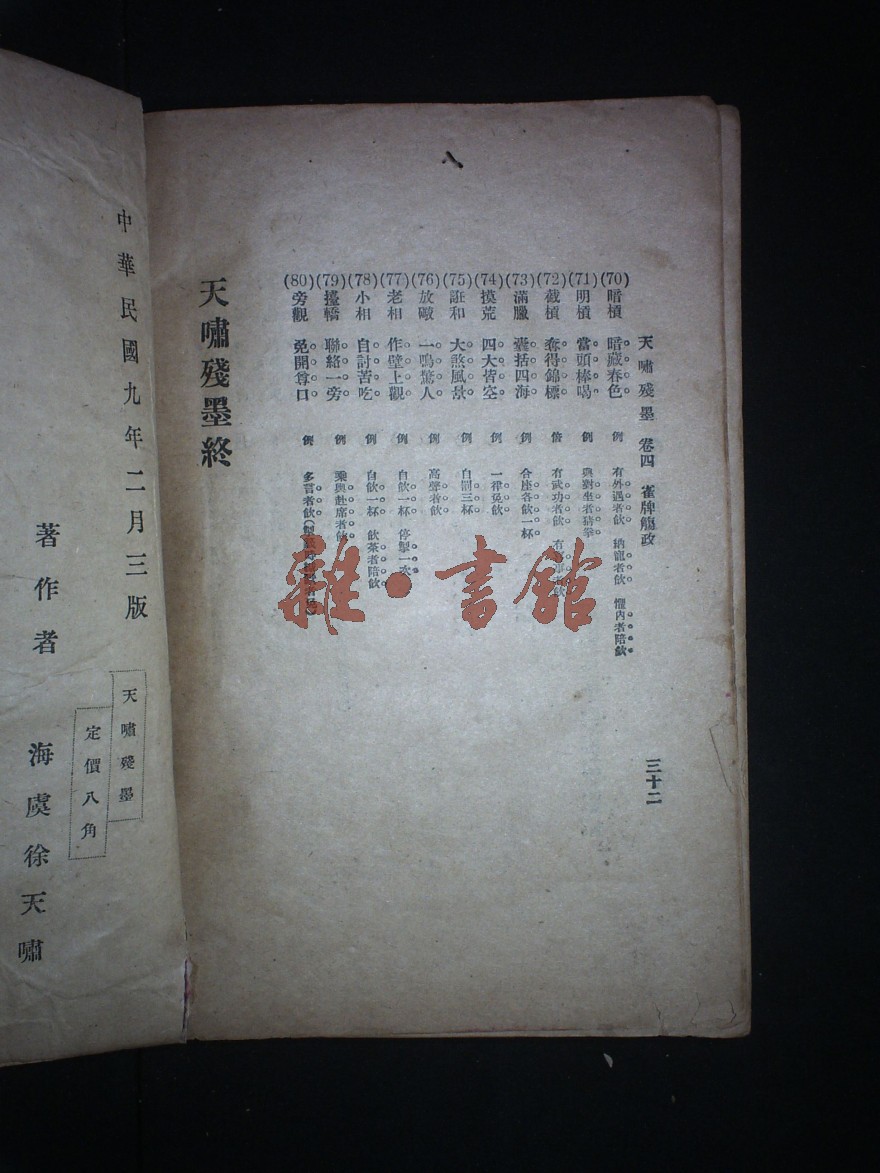 天嘯殘墨 卷四 雀牌觴政 三十二
(70) 暗槓 暗藏春色 例 有外遇者飲 納寵者飲 懼內者陪飲
(71) 明槓 當頭棒喝 例 與對坐者猜拳
(72) 截槓 奪得錦標 倍 有武功者飲 有 者飲
(73) 滿臘 囊括四海 例 合座各飲一杯
(74) 摸荒 四大皆空 例 一律免飲
(75) 誑和 大煞風景 例 自罰三杯
(76) 放礮 一鳴驚人 例 高聲者飲
(77) 老相 作壁上觀 例 自飲一杯 停掣一次
(78) 小相 自討苦吃 例 自飲一杯 飲茶者陪飲
(79) 擡轎 聯絡一旁 例 乘輿赴席者飲
(80) 旁觀 免開尊口 例 多言者飲
天嘯殘墨終
中華民國九年二月三版
天嘯殘墨
定價八角
著作者 海虞徐天嘯
雜·書館